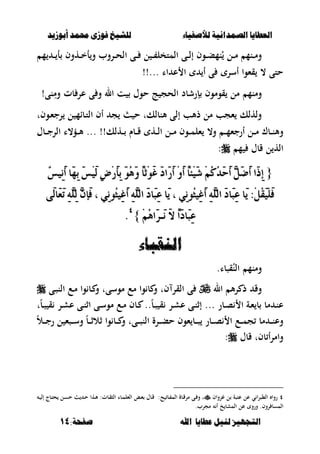 العطايا الصمدانية للأصفياء للشيخ فوزى محمد أبوزيد
ومنهم من يُنهضون إلى المتخلفين فى الحروب ويأخذون بأيديهم
حتى لا يقعوا أسرى فى أيدى الأعداء ...!!
ومنهم من يقومون بإرشاد الحجيج حول بيت الله وفى عرفات ومنى!
ولذلك يعجب من ذهب إلى هنالك، حيث يجد أن التائهين يرجعون،
وهناك من أرجعهم ولا يعلمون من الذى قام بذلك!! ... هؤلاء الرجال
الذين قال فيهم ﷺ:
{ إِذَا أَضَلَّ أَحَدُكُمْ شَيْئاً أَوْ أَرَادَ غَوْثاً وَهُوَ بِأَرْضٍ لَيْسَ بِهَا أَنِيسٌ
فَلْيَقُلْ: يَا عِبَادَ اللَّهِ أَغِيثُونِي ، يَا عِبَادَ اللَّهِ أَغِيثُونِي ، فَإِنَّ لِلَّهِ تَعَالَى
عِبَاداً لاَ نَرَاهُمْ }٤.
النقباء
ومنهم النُقباء.
وقد ذكرهم الله فى القرآن، وكانوا مع موسى، وكانوا مع النبى ﷺ
عندما بايعة الأنصار ... إثنى عشر نقيباً.. كان مع موسى اثنى عشر نقيباً،
وعندما تجمع الأنصار يبايعون حضرة النبى، وكانوا ثلاثاً وسبعين رجلاً
وامرأتان، قال ﷺ:
٤ رواه الطبرانى عن عتبة بن غزوان، وفى مرقاة المفاتيح: قال بعض العلماء الثقات: هذا حديث حسن يحتاج إليه
المسافرون. وروى عن المشايخ أنه مجرب.
التجهيز لنيل عطايا الله صفحة:١٤